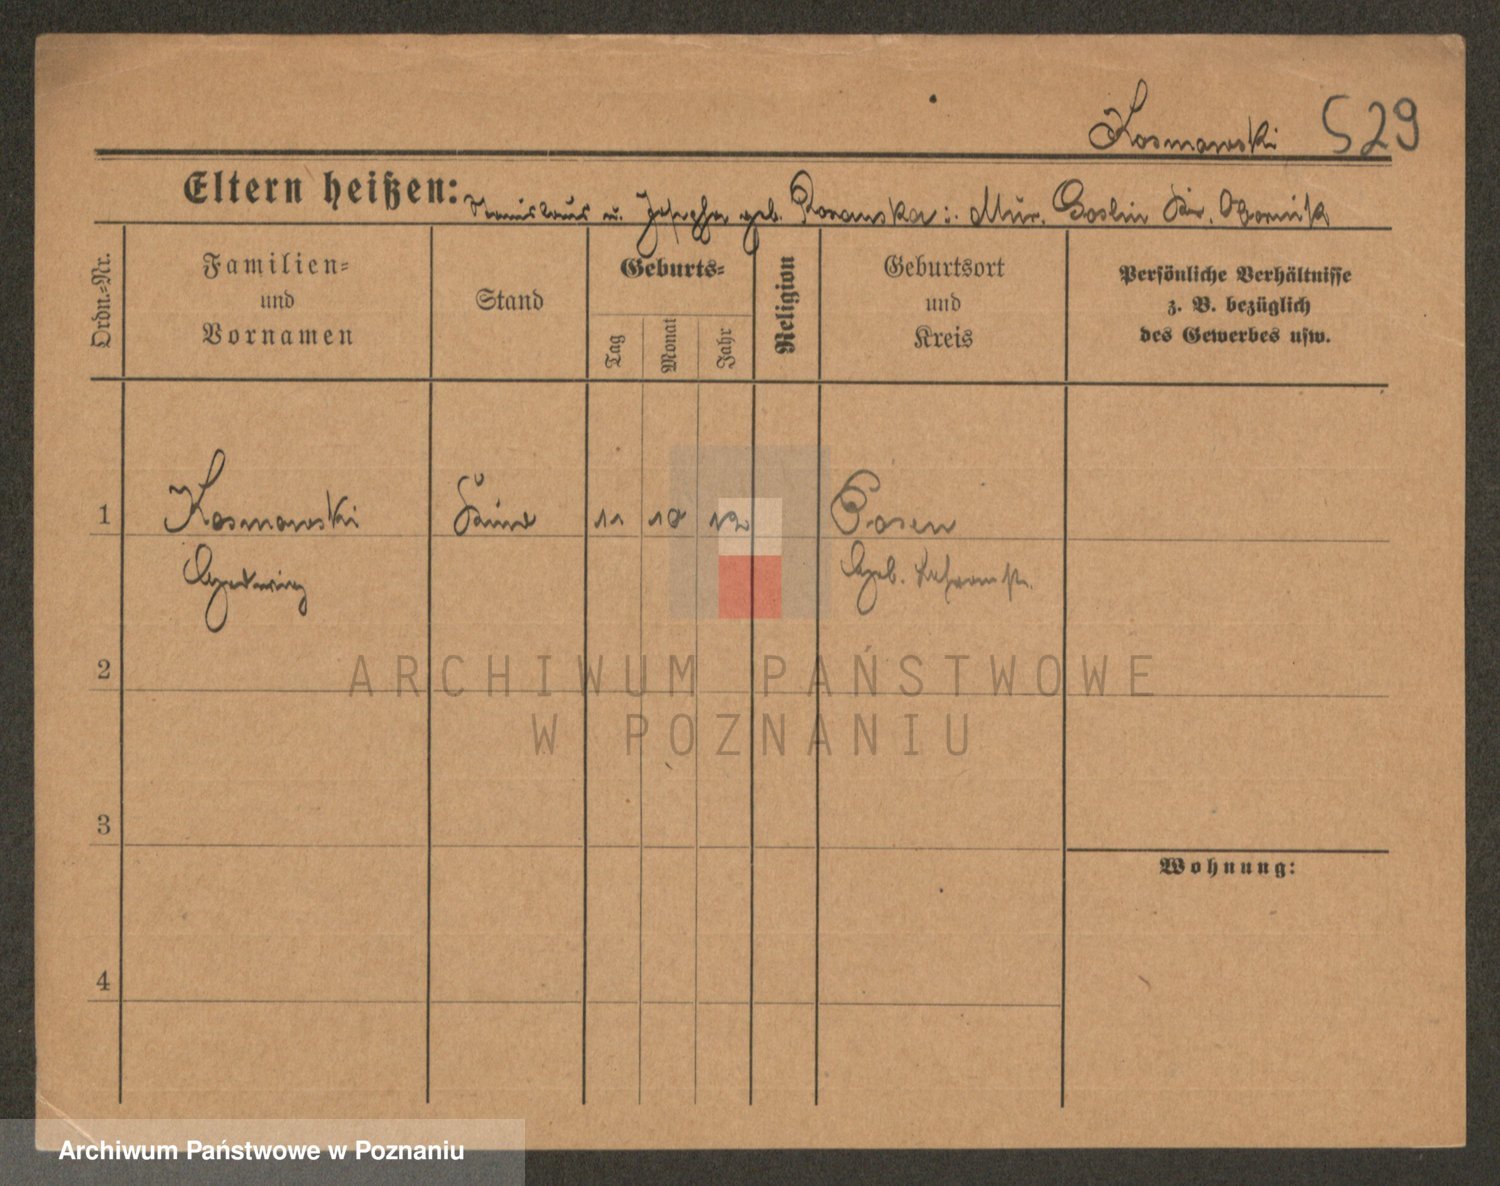 Kosmowski 529
Eltern heißen: Stanislaus u. Josepha geb. i. Mur. Goslin Kr. Obornik
Ordn.=Nr.
Familien=
und
Vornamen
Stand
Geburts=
Tag
Monat
Jahr
Religion
Geburtsort
und
Kreis
Persönliche Verhältnisse
z. B. bezüglich
des Gewerbes usw.
1 Kosmowski Kind 11 10 12 Posen
Hedwig Geb.
2
3
Wohnung:
4
ARCHIWUM PAŃSTWOWE
W POZNANIU
Archiwum Państwowe w Poznaniu